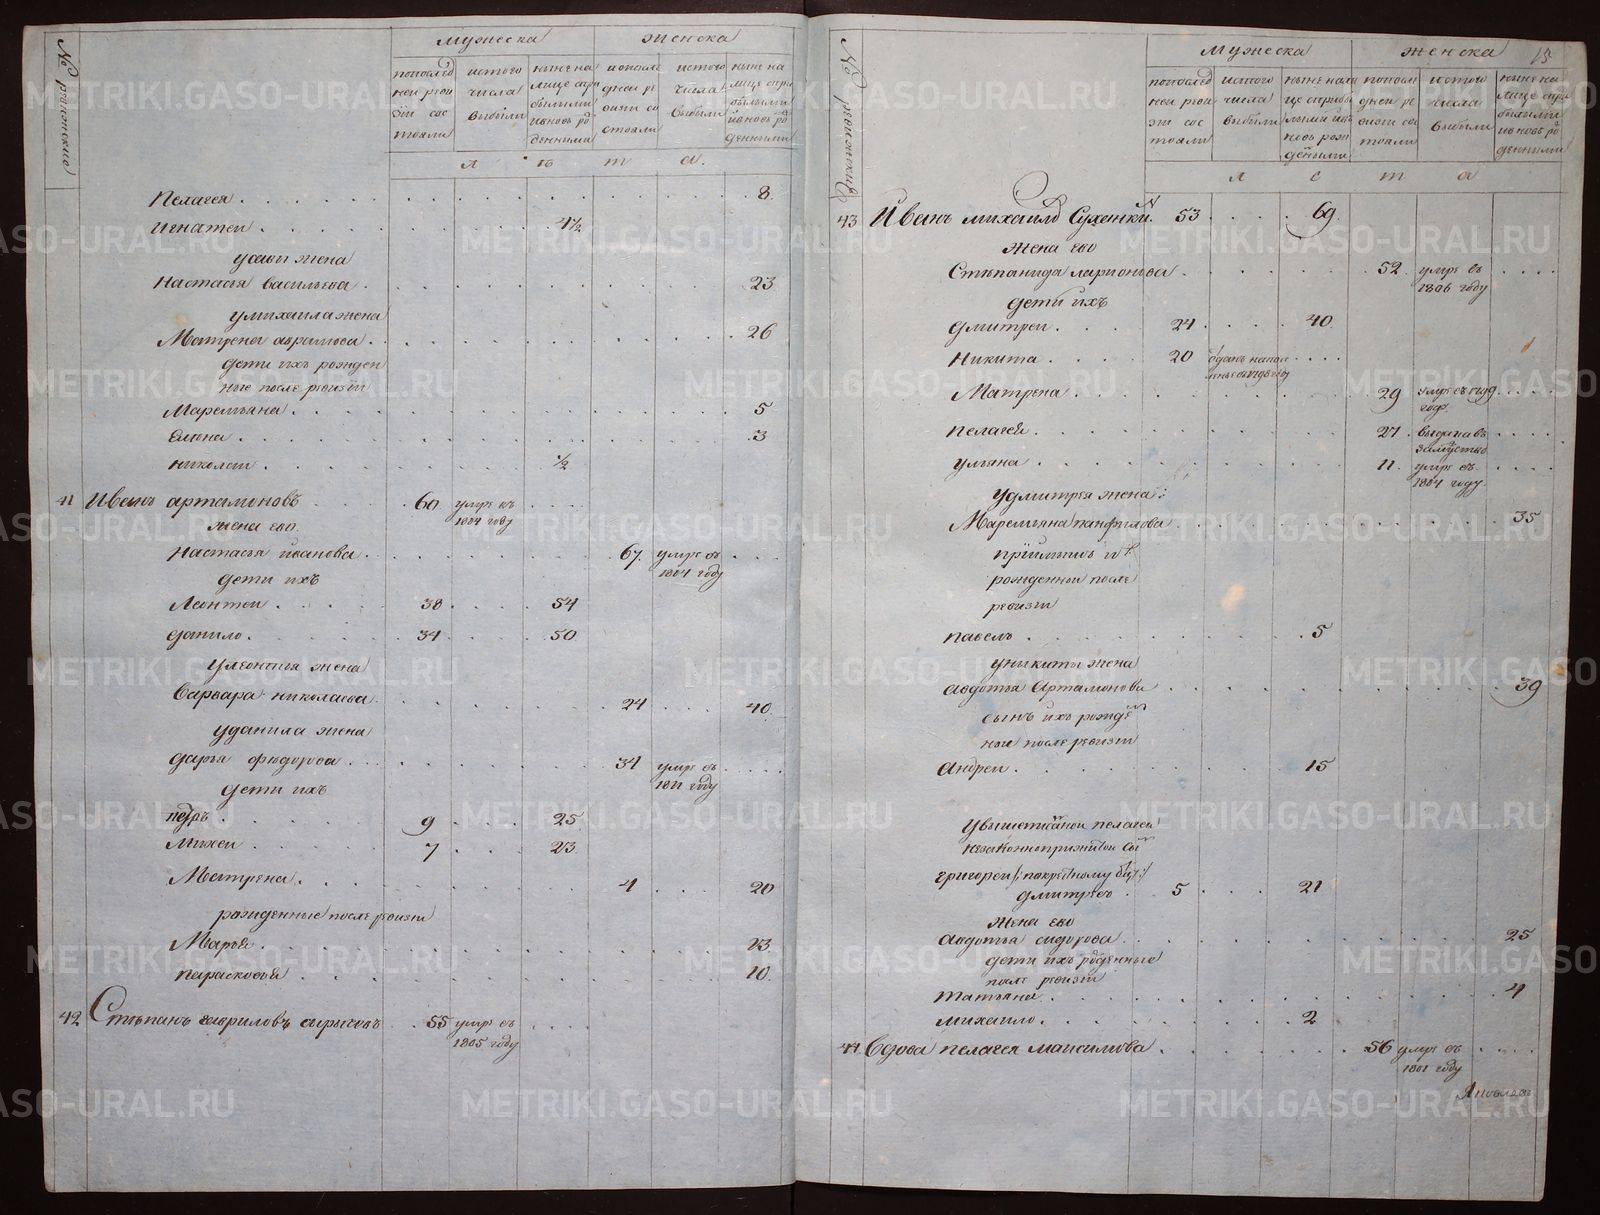 № ревижские
мужеска
женска
попослед
ней реви
зии сос
тояли
истого
числа
выбыли
ныне на
лице спри
былыми
ивновь ро
денными
попосле
дней ре
визии со
стояли
истого
числа
выбыли
ныне на
лице при
былыми
ивновь ро
денными
л ѣ т а.
Пелагея 8.
игнатеи 4½
усавы жена
Настасья васильева 23
умихаила жена
Матрена аврамова 26
дети ихъ рожден
ные после ревизiи
Маремьяна 5
Елена 3
николаи ½
41 Иванъ артамоновъ 60 умре въ
1804 году
жена ево
Настасья иванова 67. умре въ
1804 году
дети ихъ
Леонтеи 38 54
данило 34 50
улеонтья жена
варвара николаева 24 40.
уданила жена
дарья федорова 34 умре въ
1811 году
дети ихъ
петръ 9 25
михеи 7 23
Матрена 4 20
рожденные после ревизiи
Марья 13
парасковья 10.
42 Степанъ гавриловъ сырыговъ 55 умре въ
1805 году
15
№ ревижские
мужеска
женска
попослед
ней реви
зии сос
тояли
истого
числа
выбыли
ныне нали
це сприбы
лыми ивъ
новь рож
денными
попосле
дней ре
визии со
стояли
истого
числа
выбыли
ныне на
лице спри
былыми
ивновь ро
денными
л е т а
43 Иванъ михаилов Сухенкии 53 69.
жена ево
Степанида ларионова 52. умре въ
1806 году
дети ихъ
дмитреи 24 40
Никита 20
Матрена 29 умре въ
году
пелагея 27 выдана въ
замужство
ульяна 11. умре въ
1804 году.
удмитрея жена:
Маремьяна панфилова 35
рожденнои после
ревизiи
павелъ 5
уникиты жена
авдотья Артамонова 39
сынъ ихъ рожде
ныи после ревизiи
Андреи 15
увышеписанои пелагеи
незаконноприжитои сы
григореи /: покрестному отцу:/
дмитревъ 5 21
жена ево
авдотья сидорова 25
дети ихъ роденные
после ревизiи
татьяна 4
михаило 2
44 вдова пелагея максимова 56 умре въ
1801 году
METRIKI.GASO-URAL.RU